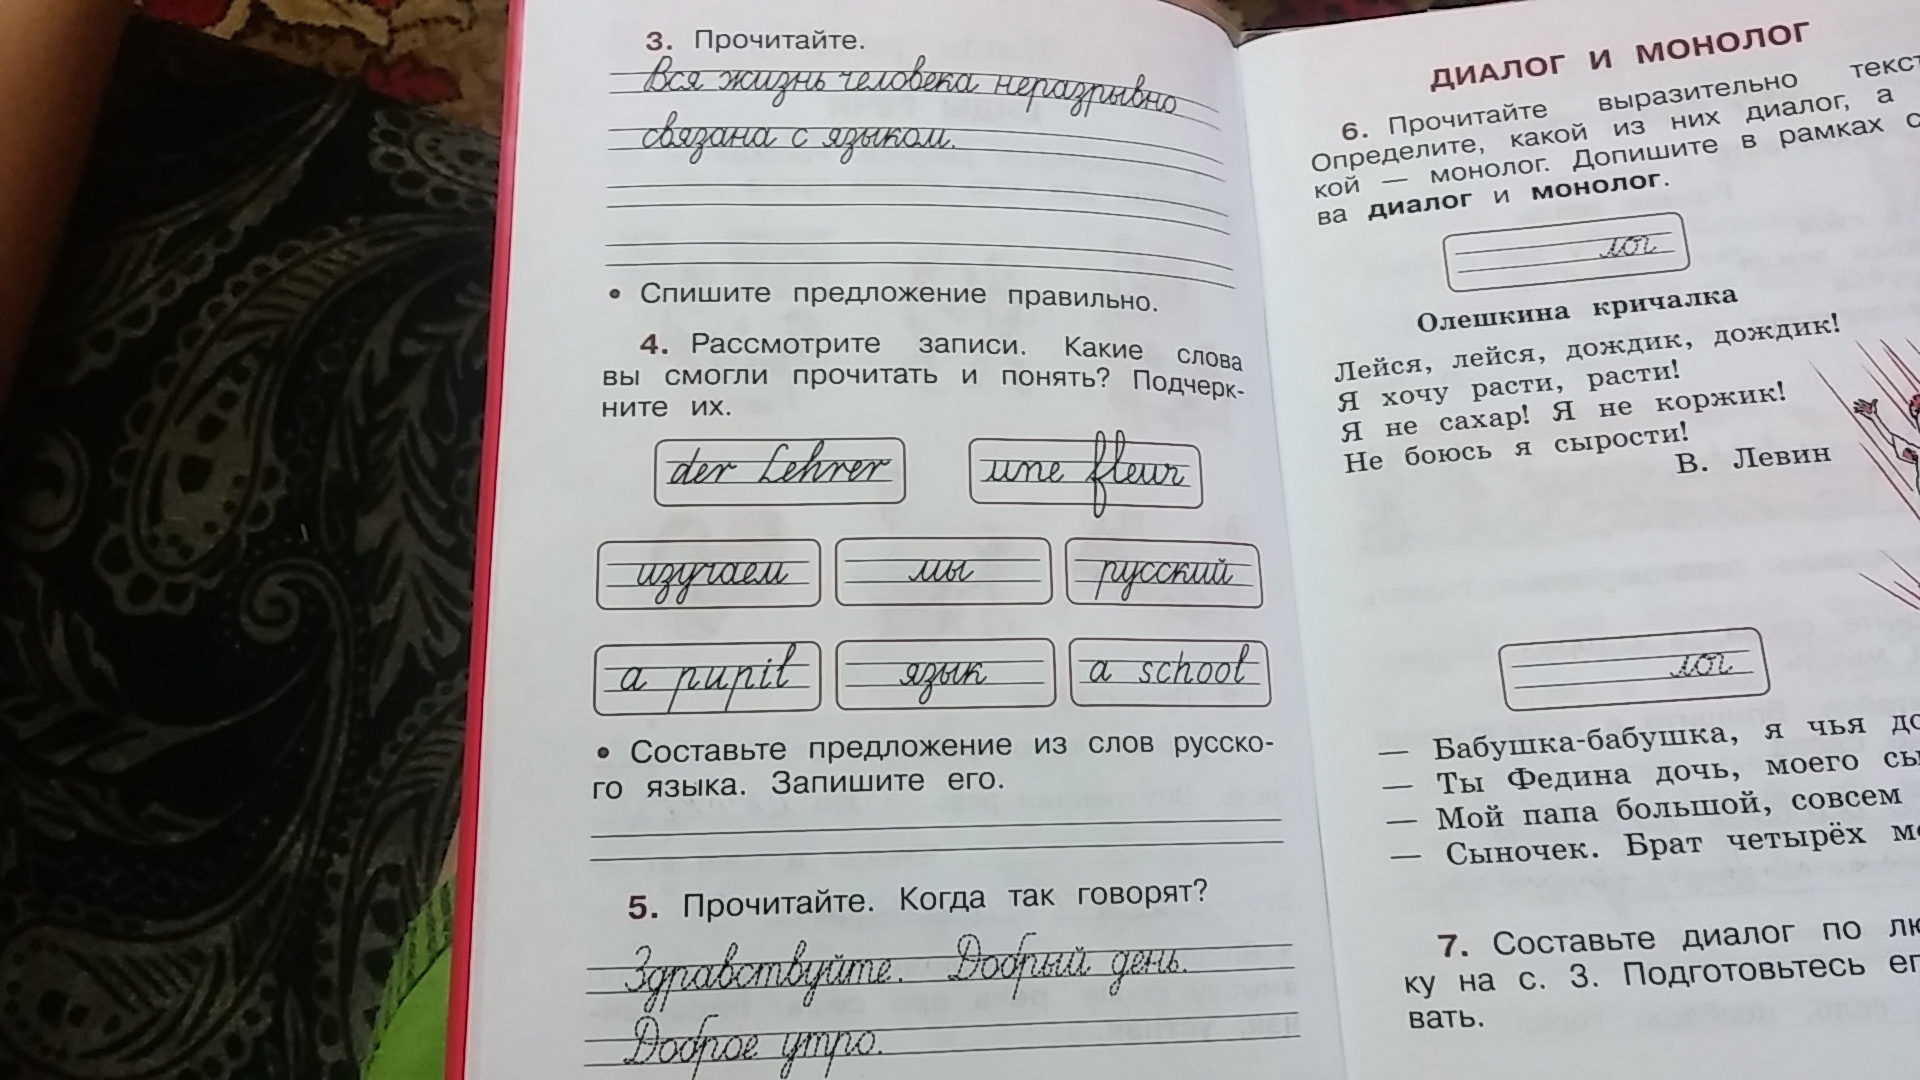 3. Прочитайте.
Вся жизнь человека неразрывно
связана с языком.
• Спишите предложение правильно.
4. Рассмотрите записи. Какие слова
вы смогли прочитать и понять? Подчерк-
ните их.
der Lehrer une fleur
изучаем мы русский
a pupil язык a school
• Составьте предложение из слов русско-
го языка. Запишите его.
5. Прочитайте. Когда так говорят?
Здравствуйте. Добрый день.
Доброе утро.
ДИАЛОГ И МОНОЛОГ
6. Прочитайте выразительно
Определите, какой из них диалог, а
кой — монолог. Допишите в рамках
ва диалог и монолог.
лог
Олешкина кричалка
Лейся, лейся, дождик, дождик!
Я хочу расти, расти!
Я не сахар! Я не коржик!
Не боюсь я сырости!
В. Левин
лог
— Бабушка-бабушка, я чья
— Ты Федина дочь, моего
— Мой папа большой, совсем
— Сыночек. Брат четырёх
7. Составьте диалог по
ку на с. 3. Подготовьтесь
вать.